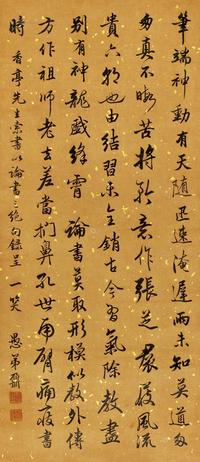 筆端神動有天隨迅速淹遲兩未知莫道匆
匆真不暇苦將矜意作張芝裙屐風流
貴六朝也由結習未全銷古今習氣除教盡
別有神龍戲絳霄 論書莫取形模似教外傳
方作祖師老去差當捫鼻孔世甯臂痛廢書
時 香亭先生索書以論書三絕句錄呈一笑 愚弟鼐